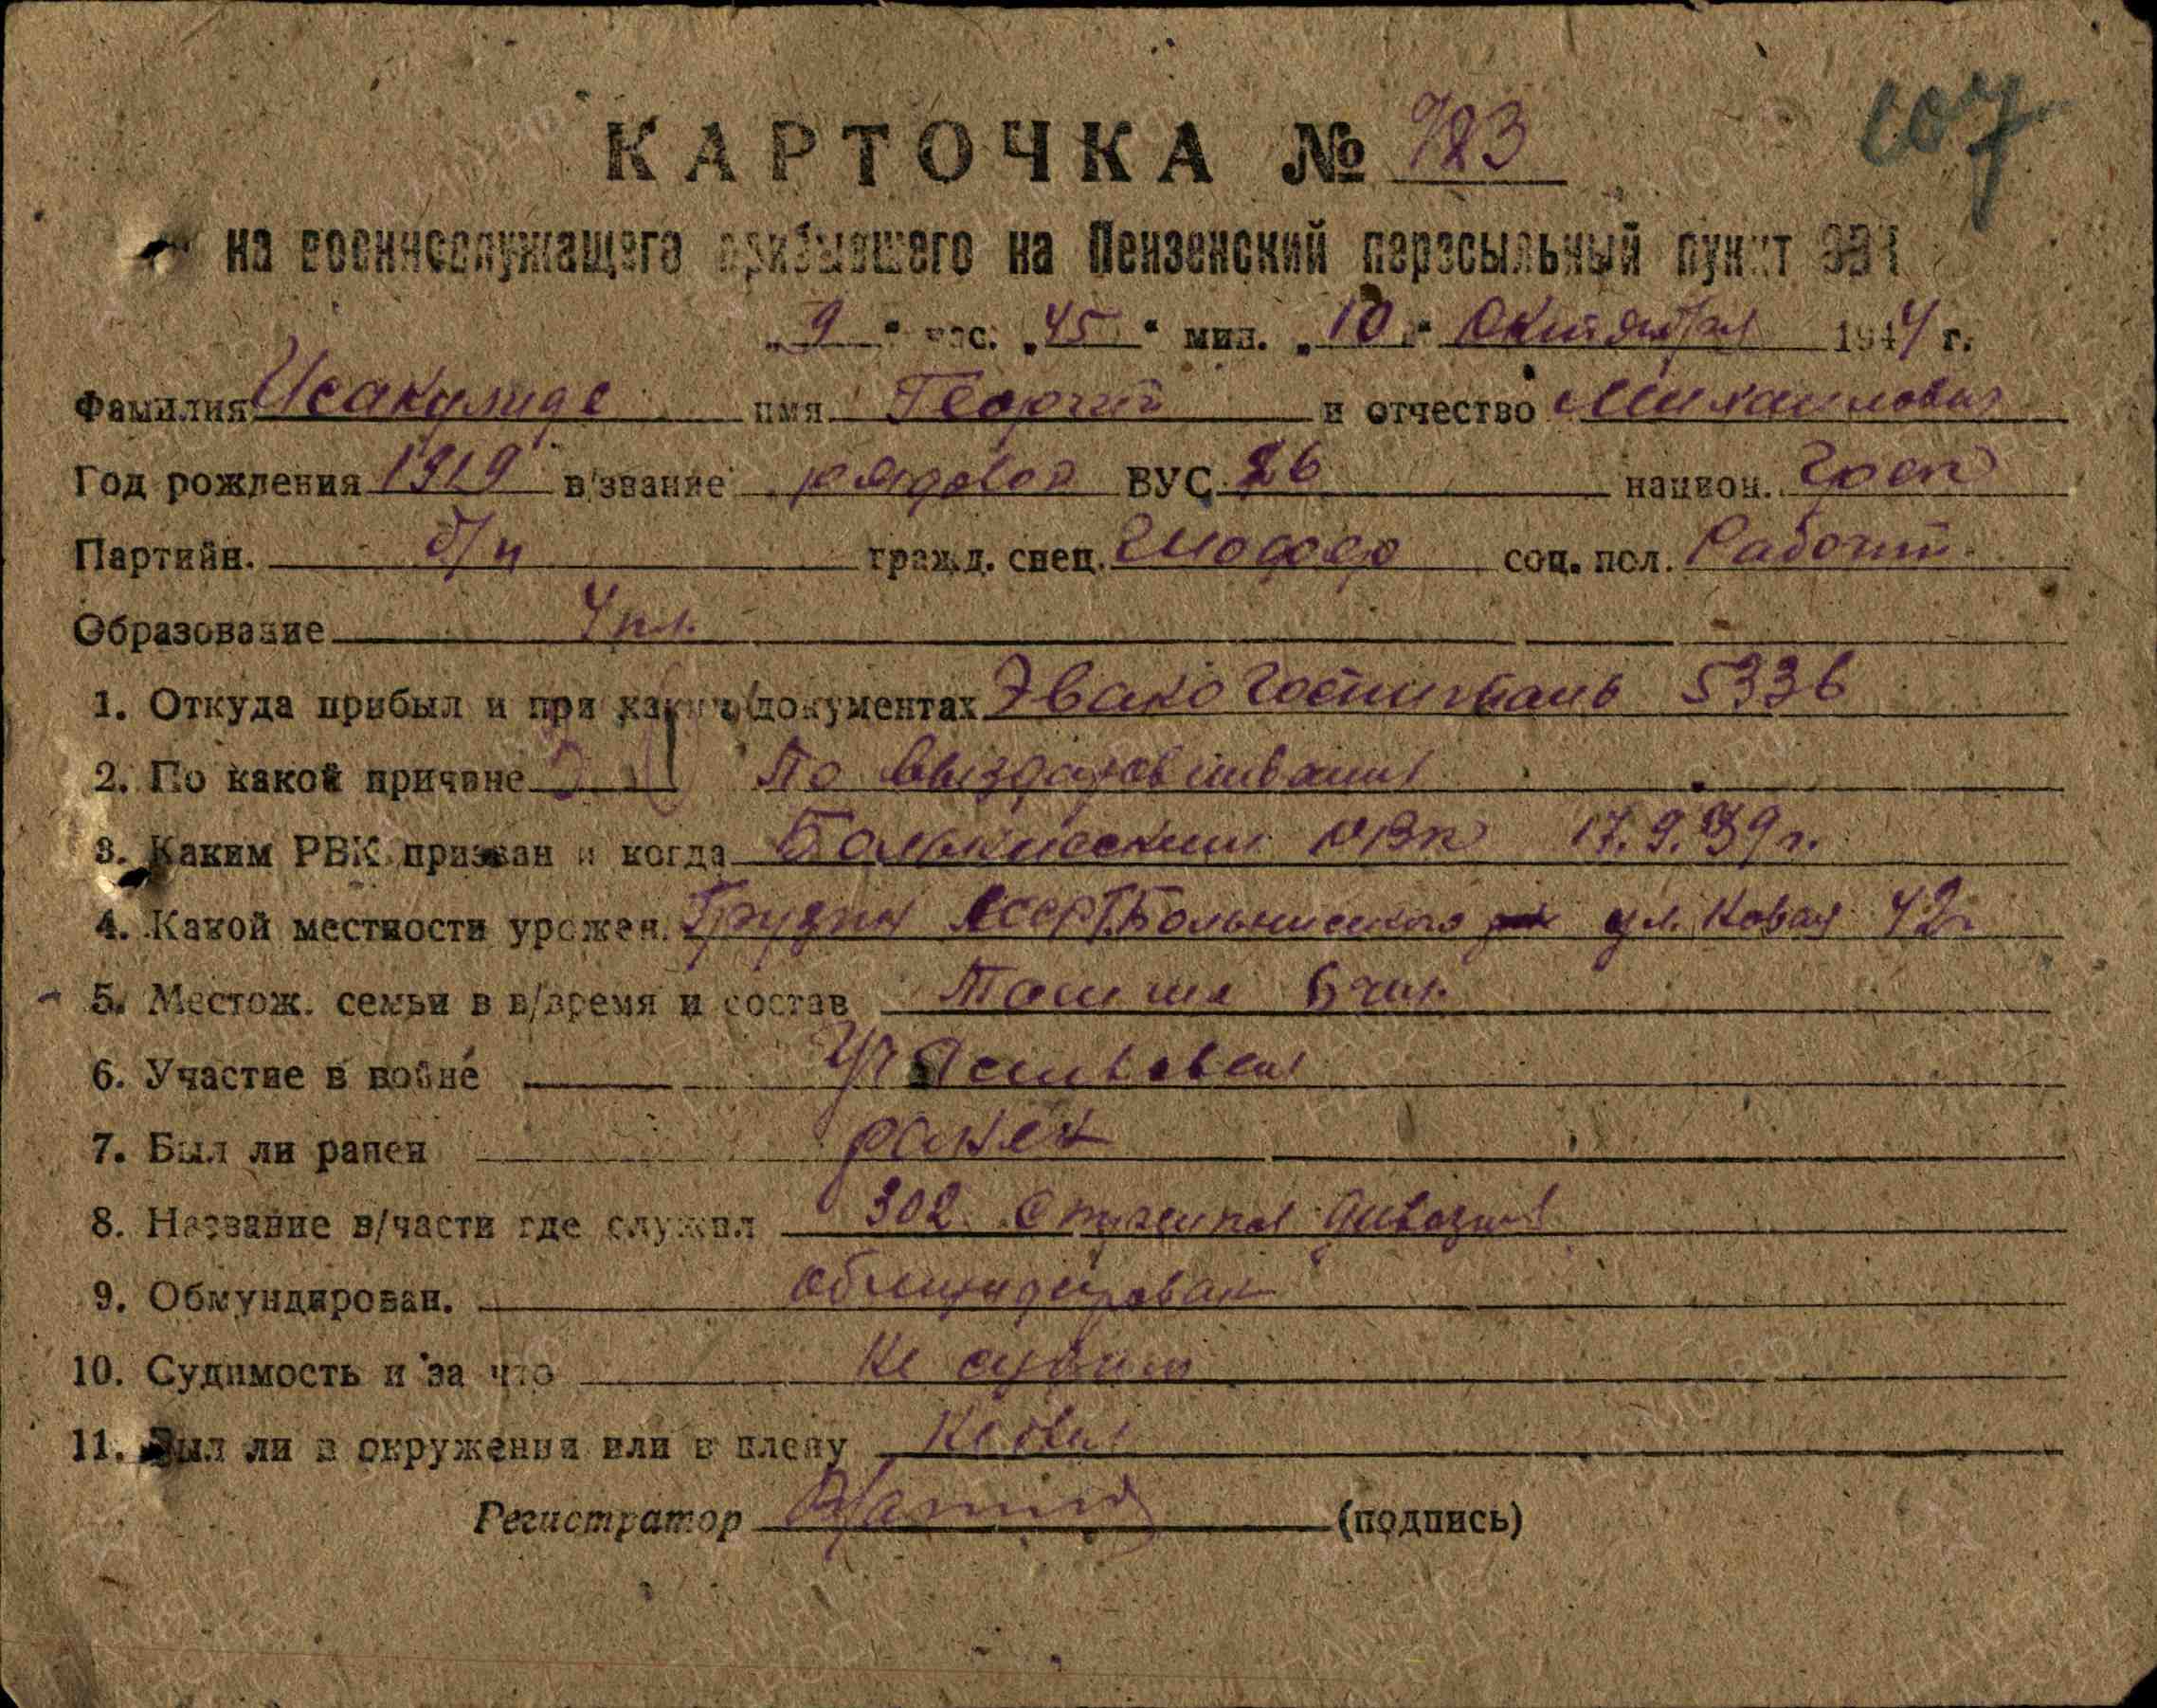 КАРТОЧКА № 723
107
на военнослужащего прибывшего на Пензенский пересыльный пункт
„9“ час. „45“ мин. „10“ Октября 1944 г.
Фамилия Исакулиде имя Георгий и отчество Михаилович
Год рождения 1919 в/звание рядовой ВУС 26 национ. Грек
Партийн. б/п гражд. спец. Шофер соц. пол. Рабочий
Образование 4 кл.
1. Откуда прибыл и при каких документах Эвако Госпиталь 5336
2. По какой причине По выздоровливании
3. Каким РВК призван и когда Болниский РВК 17.9.39 г.
4. Какой местности урожен. Грузия ССР ул. Новая 42
5. Местож. семьи в в/время и состав 6 чел.
6. Участие в войне Участвовал
7. Был ли ранен ранен
8. Название в/части где служил 302 Стрелкая дивизия
9. Обмундирован. обмундирован
10. Судимость и за что Не судим
11. Был ли в окружении или в плену Не был
Регистратор (подпись)